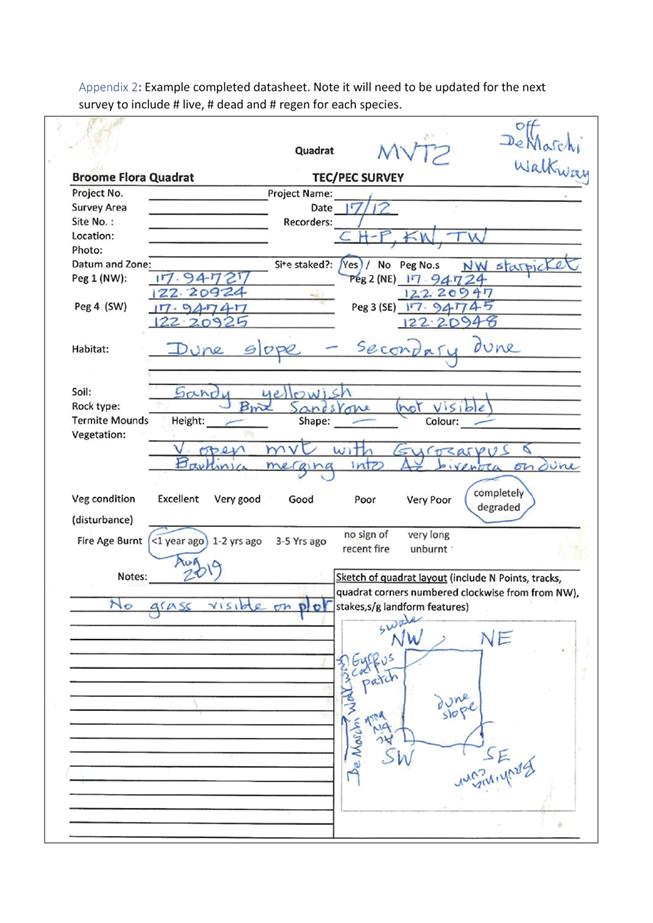 Appendix 2: Example completed datasheet. Note it will need to be updated for the next
survey to include # live, # dead and # regen for each species.
Quadrat MVT2
off
DeMarchi
walkway
Broome Flora Quadrat TEC/PEC SURVEY
Project No. Project Name:
Survey Area Date 17/12
Site No. : Recorders:
Location: CH-P, KW, TW
Photo:
Datum and Zone: Site staked?: Yes / No Peg No.s NW starpicket
Peg 1 (NW): 17.94727 Peg 2 (NE) 17.94724
122.20924 122.20947
Peg 4 (SW) 17.94747 Peg 3 (SE) 17.94745
122.20925 122.20948
Habitat: Dune slope - secondary dune
Soil: Sandy yellowish
Rock type: Bme Sandstone (not visible)
Termite Mounds Height: – Shape: – Colour: –
Vegetation:
V. open mvt with Gyrocarpus &
Bauhinia merging into Ac bivenosa on dune
Veg condition Excellent Very good Good Poor Very Poor completely
(disturbance) degraded
Fire Age Burnt <1 year ago 1-2 yrs ago 3-5 Yrs ago no sign of recent fire very long unburnt
Aug
2019
Notes:
No grass visible on plot
Sketch of quadrat layout (include N Points, tracks,
quadrat corners numbered clockwise from from NW),
stakes,s/g landform features)
swale
NW NE
Gyro
carpus
patch
De Marchi Walkway
dune
slope
Ac
biv
SW SE
Bauhinia
cunn